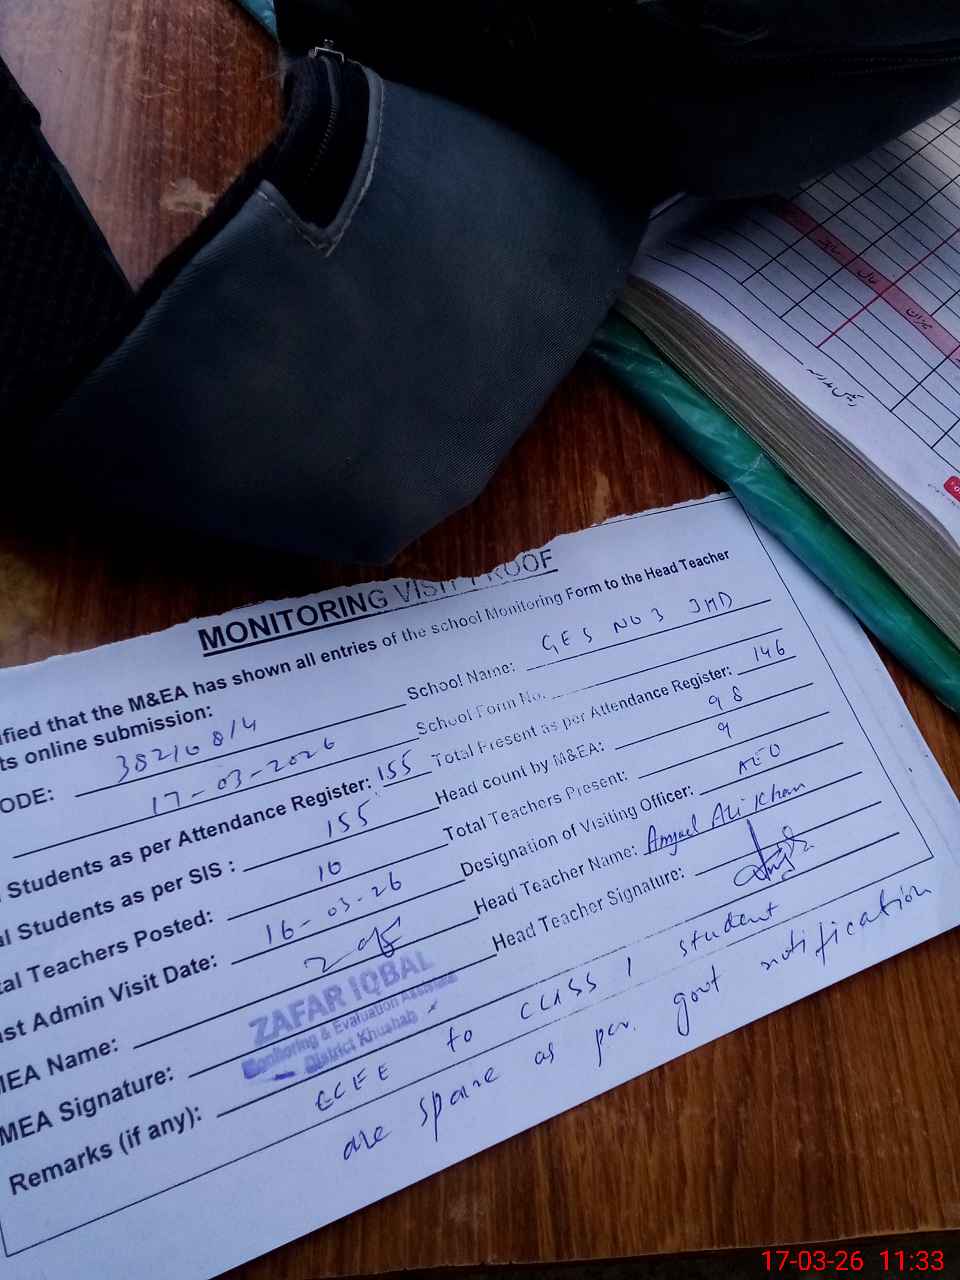 سابقہ
حال
میزان
رئیس مدرسہ
MONITORING VISIT PROOF
ified that the M&EA has shown all entries of the school Monitoring Form to the Head Teacher
ts online submission:
ODE: 38210814 School Name: GES NO 3 JHD
17-03-2026 School Form No.
Students as per Attendance Register: 155 Total Present as per Attendance Register: 146
al Students as per SIS : 155 Head count by M&EA: 98
tal Teachers Posted: 10 Total Teachers Present: 9
ast Admin Visit Date: 16-03-26 Designation of Visiting Officer: AEO
MEA Name: Head Teacher Name: Amjad Ali Khan
MEA Signature: Head Teacher Signature:
ZAFAR IQBAL
Monitoring & Evaluation Assistant
District Khushab
Remarks (if any): ECEE to CLASS 1 student
are spare as per. govt notification
17-03-26 11:33